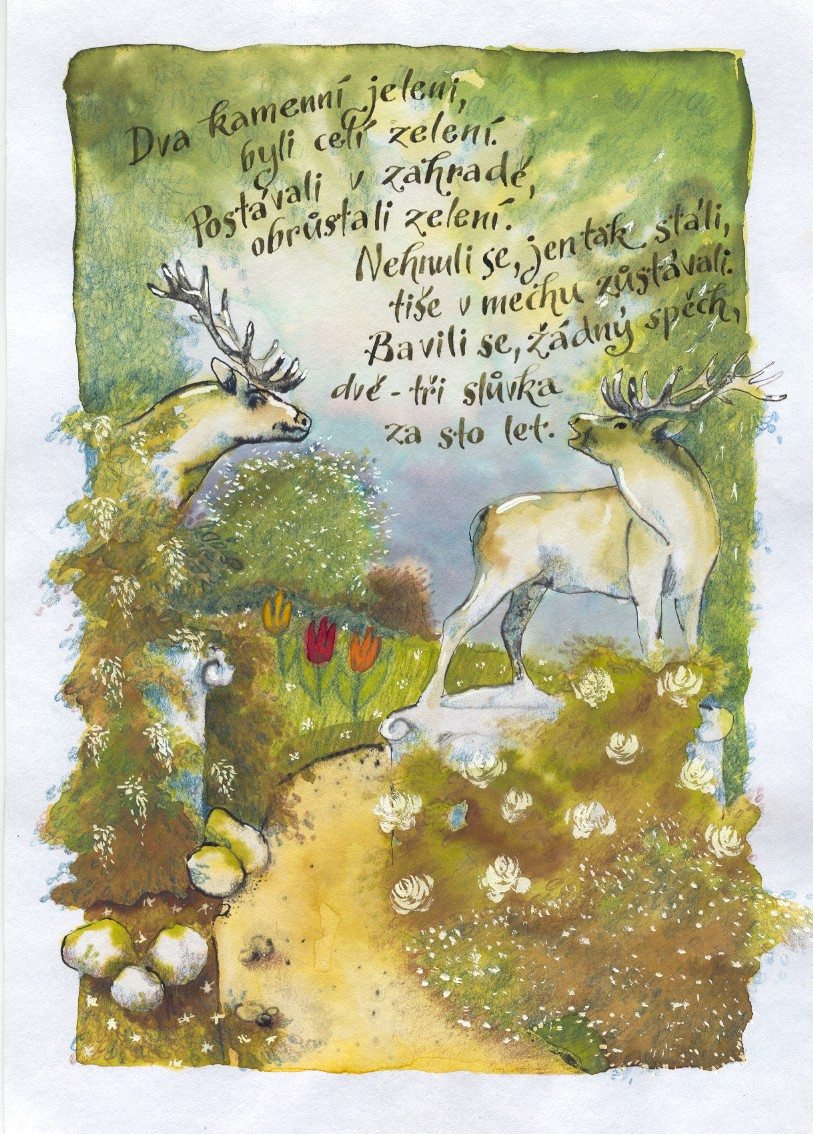 Dva kamenní jeleni,
byli celí zelení.
Postávali v zahradě,
obrůstali zelení.
Nehnuli se, jen tak stáli,
tiše v mechu zůstávali.
Bavili se, žádný spěch,
dvě - tři slůvka
za sto let.